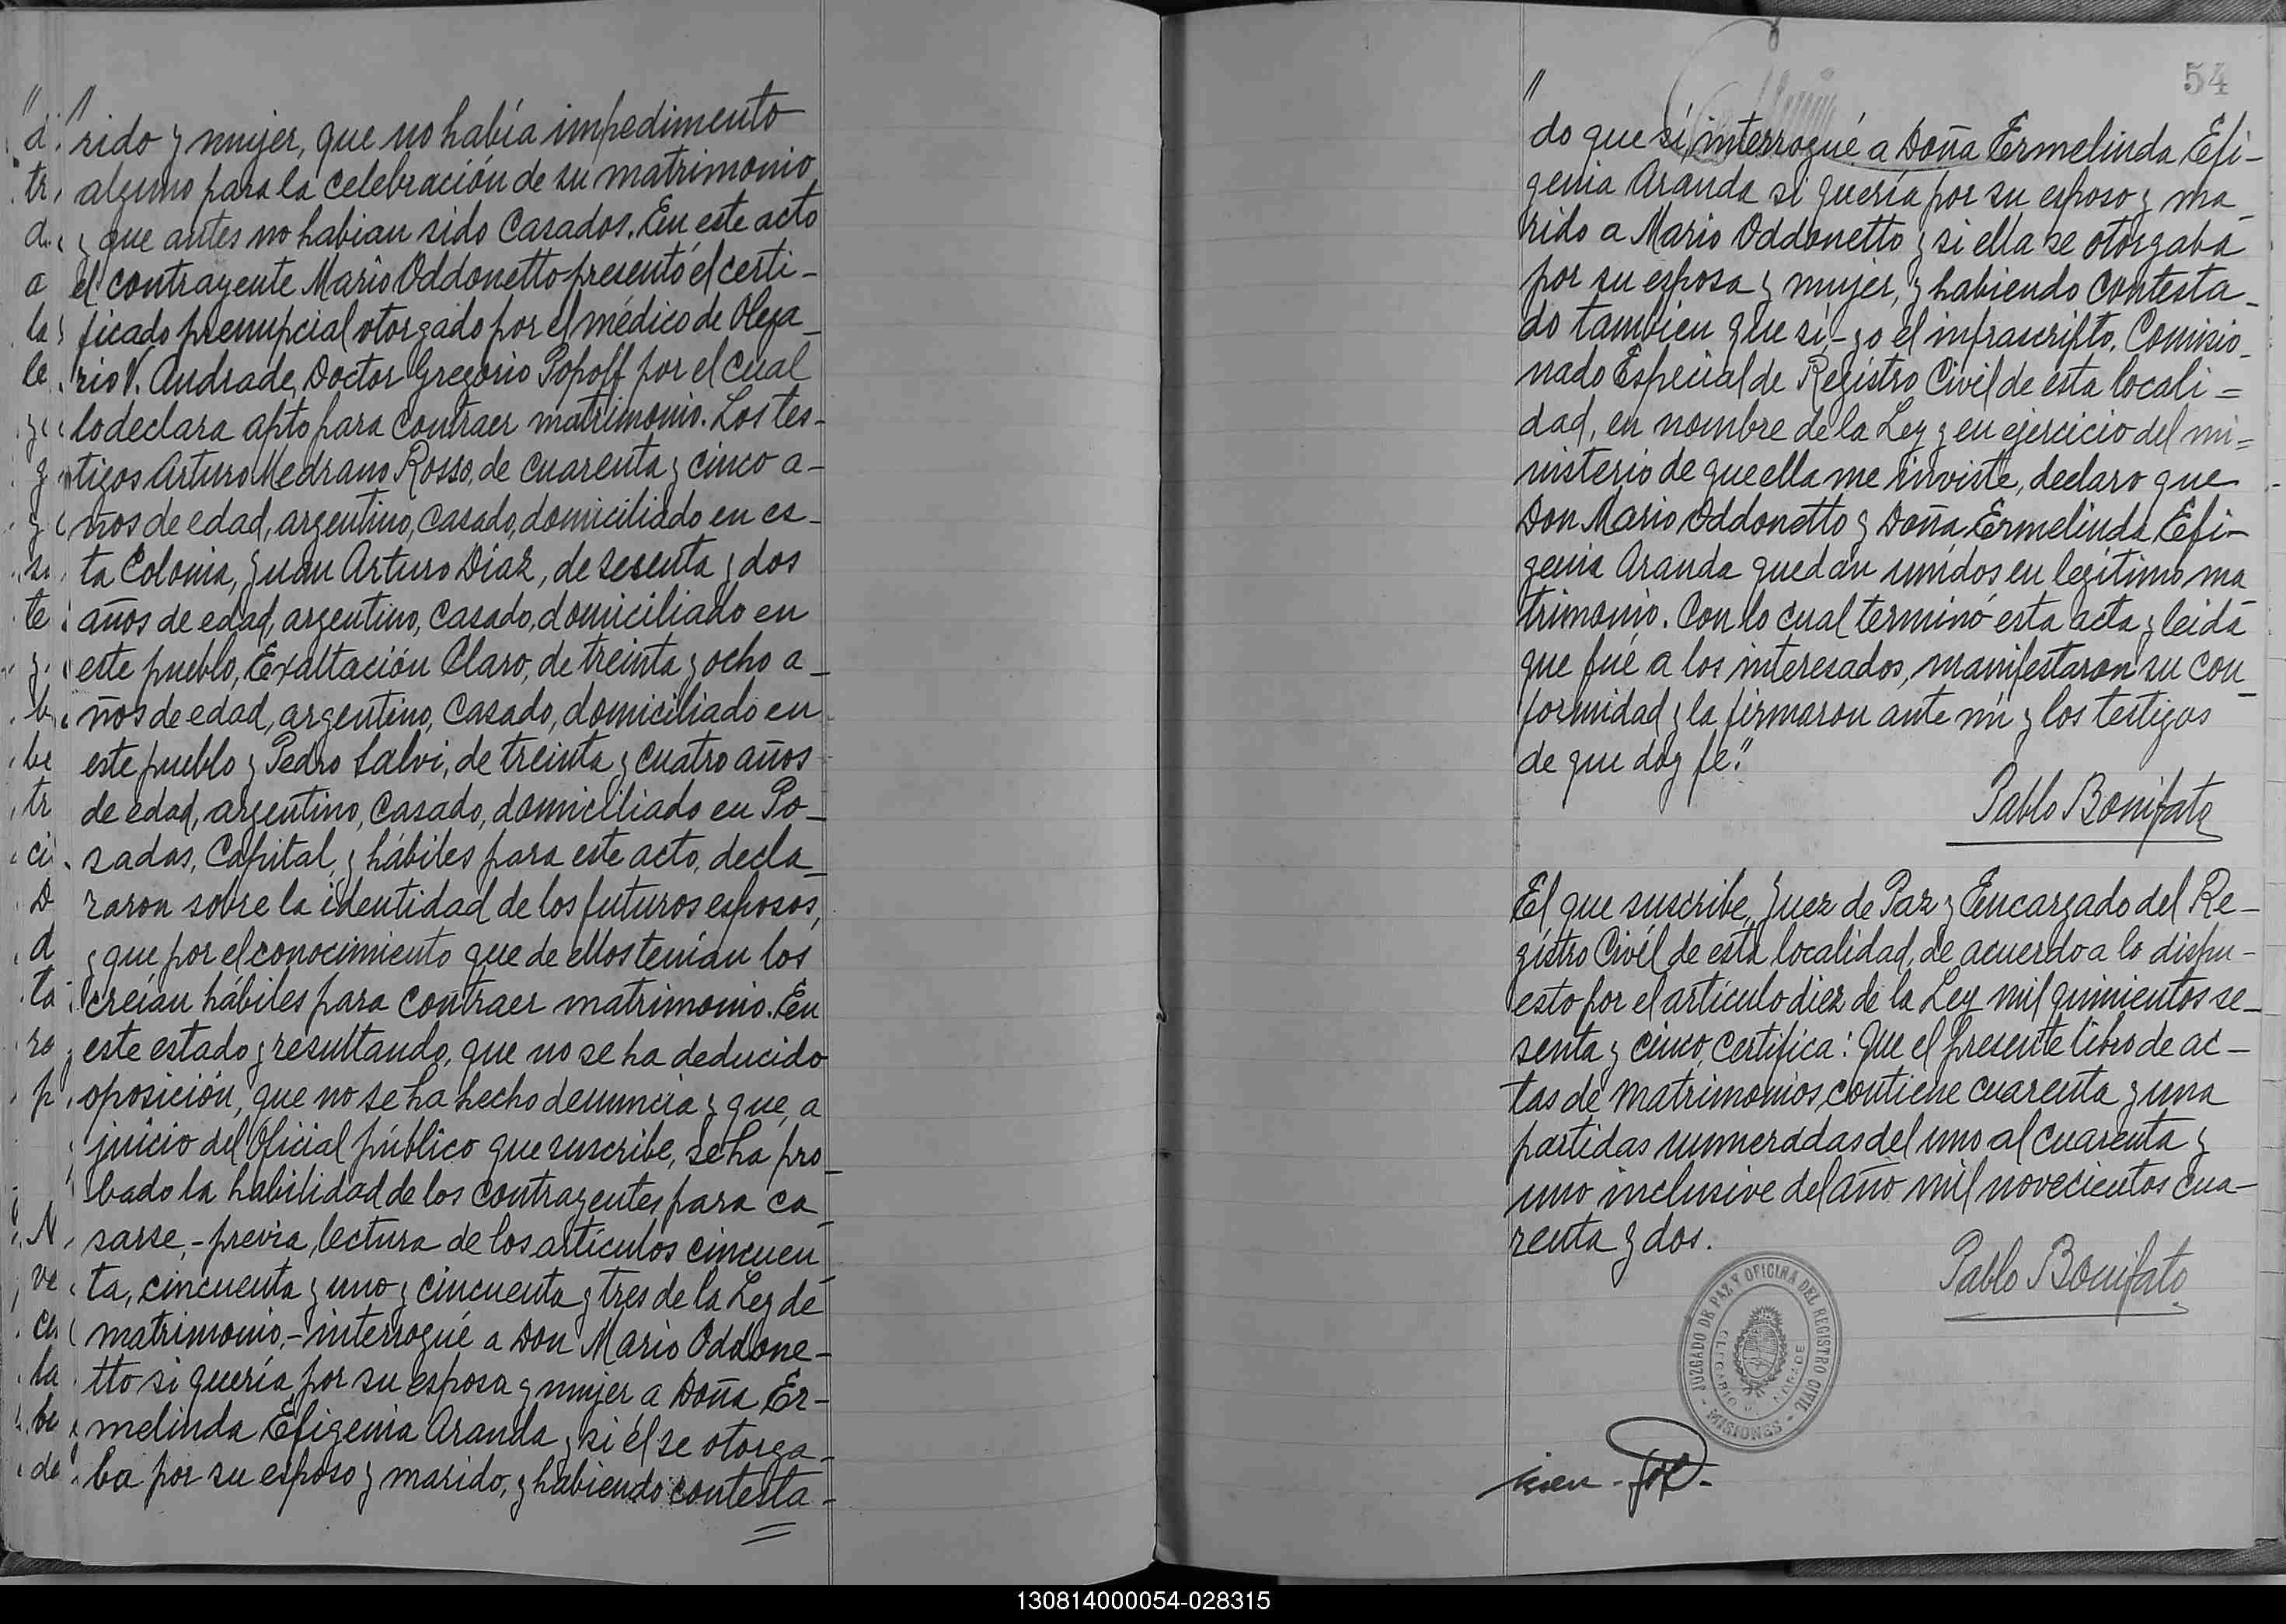 "
rido y mujer, que no había impedimento
alguno para la celebración de su matrimonio,
y que antes no habian sido casados. En este acto
el contrayente Mario Oddonetto presentó el certi-
ficado prenupcial otorgado por el médico de Olega-
rio V. Andrade, Doctor Gregorio Popoff por el cual
lo declara apto para contraer matrimonio. Los tes-
tigos Arturo Medrano Rosso, de cuarenta y cinco a-
ños de edad, argentino, casado, domiciliado en es-
ta Colonia, Juan Arturo Diaz, de sesenta y dos
años de edad, argentino, casado, domiciliado en
este pueblo, Exaltación Claro, de treinta y ocho a-
ños de edad, argentino, casado, domiciliado en
este pueblo y Pedro Salvi, de treinta y cuatro años
de edad, argentino, casado, domiciliado en Po-
sadas, Capital, y hábiles para este acto, decla-
raron sobre la identidad de los futuros esposos,
y que por el conocimiento que de ellos tenían los
creían hábiles para contraer matrimonio. En
este estado y resultando, que no se ha deducido
oposición, que no se ha hecho denuncia y que, a
juicio del Oficial público que suscribe, se ha pro-
bado la habilidad de los contrayentes para ca-
sarse,- previa lectura de los artículos cincuen-
ta, cincuenta y uno y cincuenta y tres de la Ley de
matrimonio,- interrogué a Don Mario Oddone-
tto si quería por su esposa y mujer a Doña Er-
melinda Efigenia Aranda y si él se otorga-
ba por su esposo y marido, y habiendo contesta-
54
"
do que sí, interrogué a Doña Ermelinda Efi-
genia Aranda si quería por su esposo y ma-
rido a Mario Oddonetto y si ella se otorgaba
por su esposa y mujer, y habiendo contesta-
do tambien que sí,- yo el infrascripto, Comisio-
nado Especial de Registro Civil de esta locali=
dad, en nombre de la Ley y en ejercicio del mi=
nisterio de que ella me inviste, declaro que
Don Mario Oddonetto y Doña Ermelinda Efi-
genia Aranda quedan unidos en legítimo ma-
trimonio. Con lo cual terminó esta acta y leida
que fué a los interesados, manifestaron su con-
formidad y la firmaron ante mí y los testigos
de que doy fe."
Pablo Bonifato
El que suscribe, Juez de Paz y Encargado del Re-
gistro Civil de esta localidad, de acuerdo a lo dispu-
esto por el artículo diez de la Ley mil quinientos se-
senta y cinco, certifica: Que el presente libro de ac-
tas de matrimonios, contiene cuarenta y una
partidas numeradas del uno al cuarenta y
uno inclusive del año mil novecientos cua-
renta y dos.
Pablo Bonifato
JUZGADO DE PAZ Y OFICINA DEL REGISTRO CIVIL
- MISIONES -
130814000054-028315